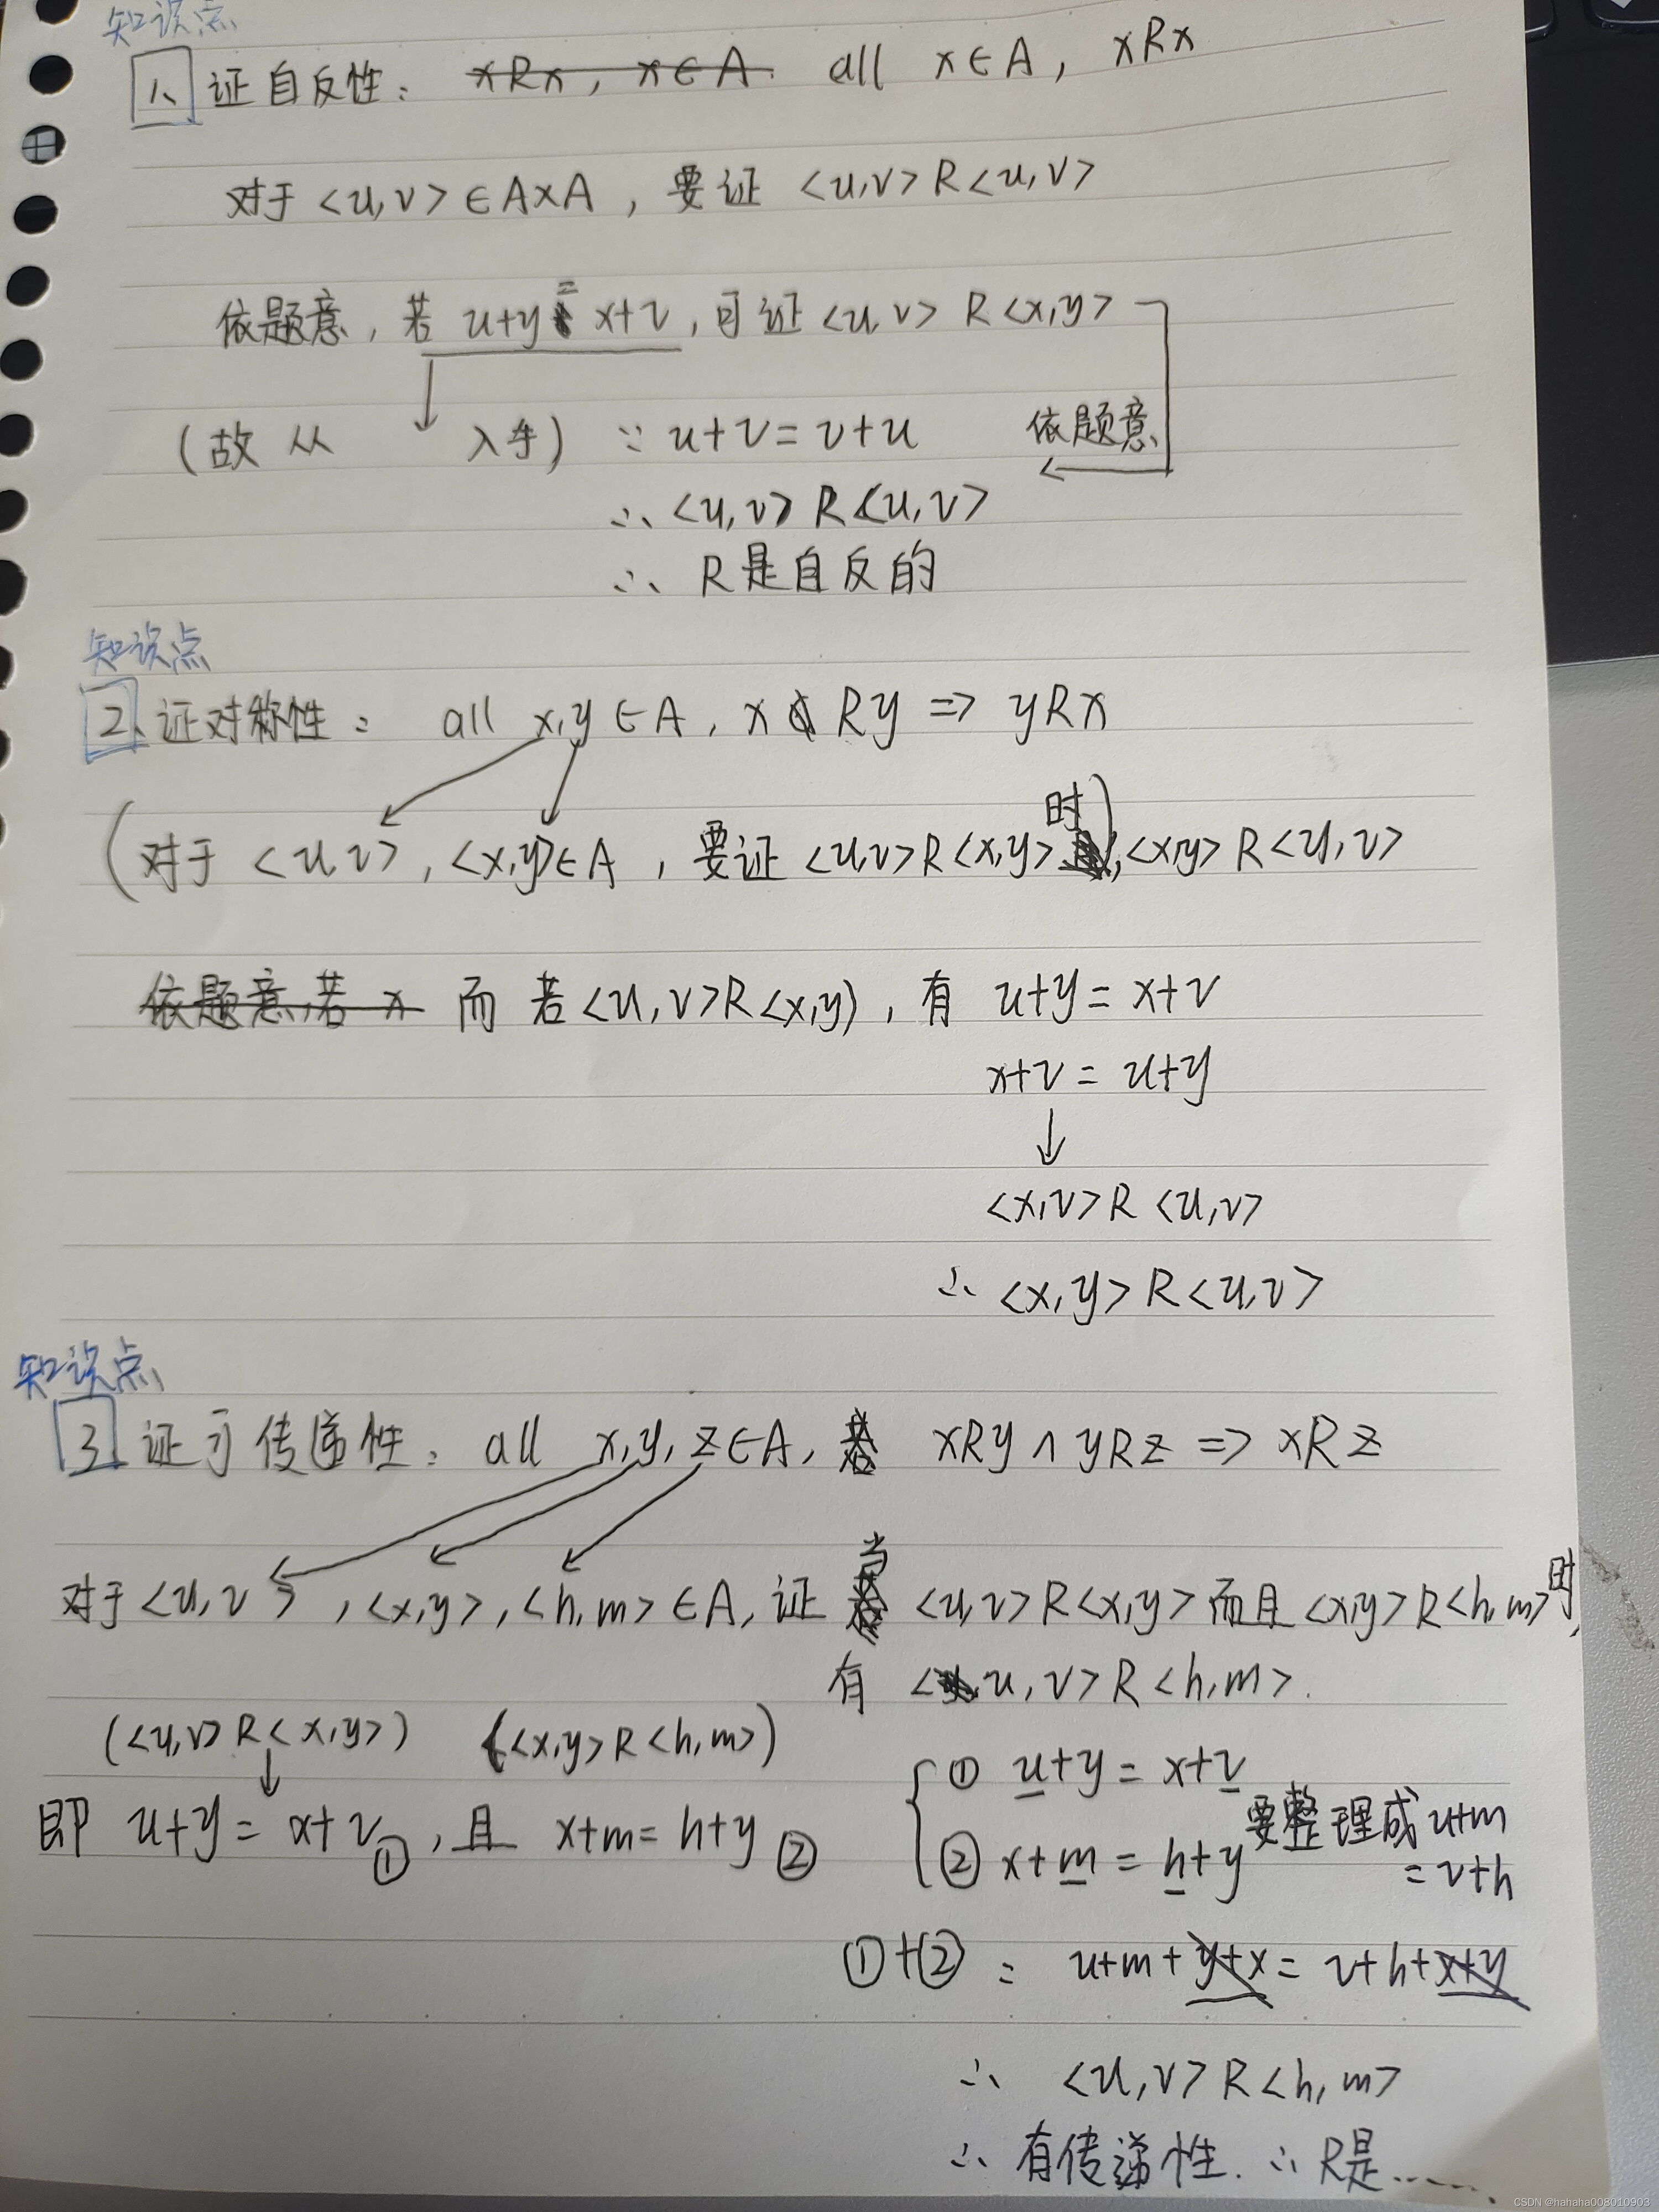 知识点
1、证自反性: xRx, x∈A. all x∈A, xRx
对于<u,v>∈A×A, 要证 <u,v>R<u,v>
依题意, 若 u+y = x+v, 可证<u,v> R<x,y>
(故 从 入手) ∵ u+v=v+u 依题意
∴ <u,v> R <u,v>
∴ R是自反的
知识点
2、证对称性: all x,y∈A, x Ry => yRx
(对于 <u,v>, <x,y>∈A, 要证<u,v>R<x,y>时), <x,y> R<u,v>
依题意,若 x 而 若<u,v>R<x,y), 有 u+y=x+v
x+v = u+y
↓
<x,v>R <u,v>
∴ <x,y>R<u,v>
知识点
3、证 传递性: all x,y,z∈A, xRy∧yRz => xRz
对于<u,v>, <x,y>, <h,m>∈A, 证 当 <u,v>R<x,y>而且<x,y>R<h,m>时,
有 <u,v>R<h,m>.
(<u,v>R<x,y>) (<x,y>R<h,m>)
即 u+y=x+v①, 且 x+m=h+y ②
① u+y = x+v
② x+m = h+y 要整理成u+m
=v+h
①+② : u+m+y+x=v+h+x+y
∴ <u,v>R<h,m>
∴ 有传递性. ∴ R是......
CSDN @hahaha008010903